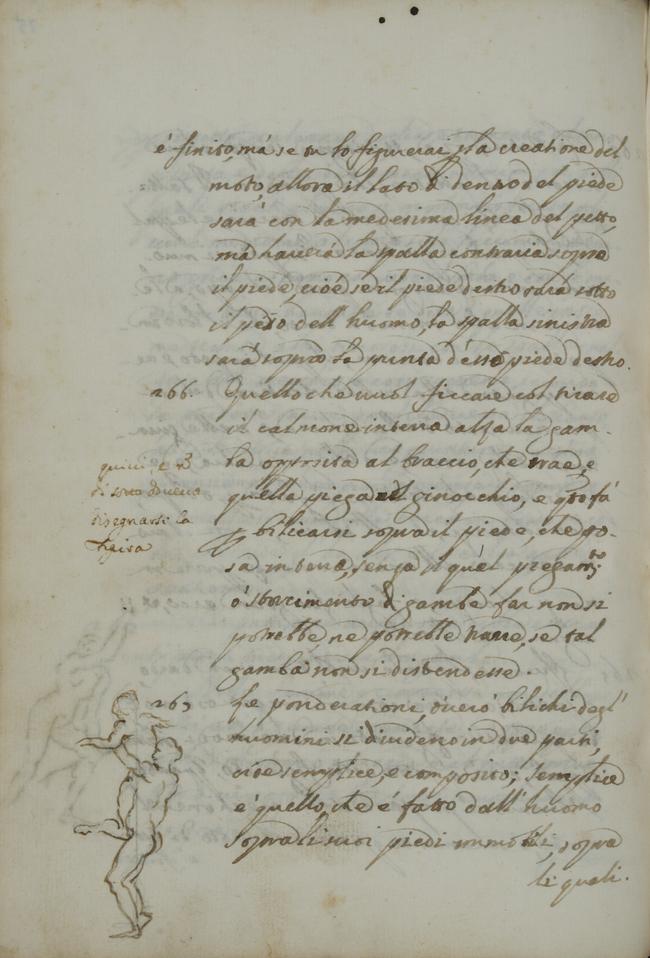 é finito, má se tu lo figurerai p la creatione del
moto, allora il lato di dentro del piede
sará con la medesima linea del petto,
má haverá la spalla contraria sopra
il piede, cioé se il piede destro sará sotto
il peso dell' huomo, la spalla sinistra
sará sopra la punta d'esso piede destro.
266. Quello che vuol ficcare col tirare
il calmone in terra alza la gam-
ba opposita al braccio, che trae, e
quella piega nel ginocchio, e qto fá
p bilicarsi sopra il piede, che po-
sa in terra, senza il qual piegamto
ó storcimento di gambe far non si
potrebbe, ne potrebbe trarre, se tal
gamba non si distendesse.
quivi, e
di sotto doveva
disegnarsi la
figura
267 Le ponderationi, óveró bilichi degl'
huomini si dividono in due parti,
cioé semplice, e composito; semplice
é quello, che é fatto dall' huomo
sopra li suoi piedi immobili, sopra
li quali.